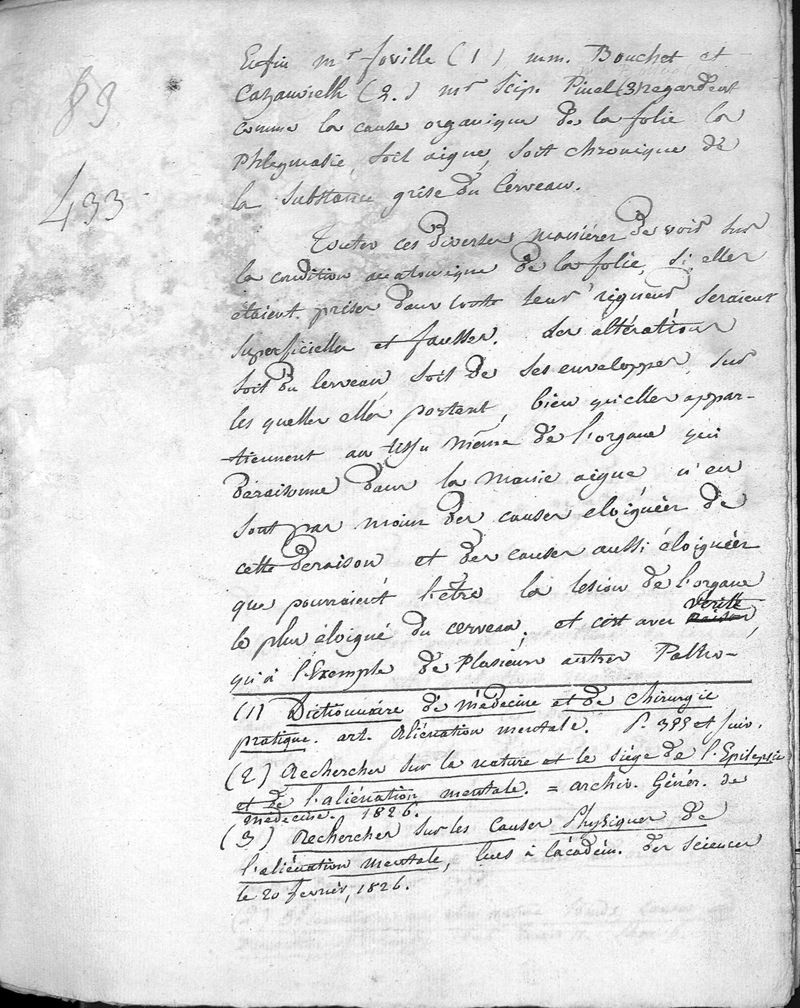 83
433
Enfin mr foville (1) mm. Bouchet et
Cazauvielh (2.) mr Scip. Pinel (3) regardent
comme la cause organique de la folie la
Phlegmasie, soit aigue, soit chronique de
la substance grise du Cerveau.
Toutes ces diverses maniéres de voir sur
la condition anatomique de la folie, si elles
étaient prises dans toute leur rigueur seraient
superficielles et fausses. des altérations
soit du Cerveau soit de ses enveloppes, sur
les quelles elles portent, bien qu'elles appar-
tiennent au tissu même de l'organe qui
déraisonne dans la manie aigue n'en
sont par moins des causes eloignées de
cette deraison et des causes aussi éloignées
que pourraient l'être la lesion de l'organe
le plus éloigné du cerveau. et c'est avec vérité raison,
qu'à l'Exemple de Plusieurs autres Patho-
(1) Dictionnaire de médecine et de chirurgie
pratique. art. Aliénation mentale. P. 395 et suiv.
(2) Recherches sur la nature et le siége de l'Epilepsie
et de l'aliénation mentale. = archiv. Génér. de
médecine. 1826.
(3) Recherches sur les Causes Physiques de
l'aliénation mentale, lues à l'acadèm. des sciences
le 20 fevrier, 1826.